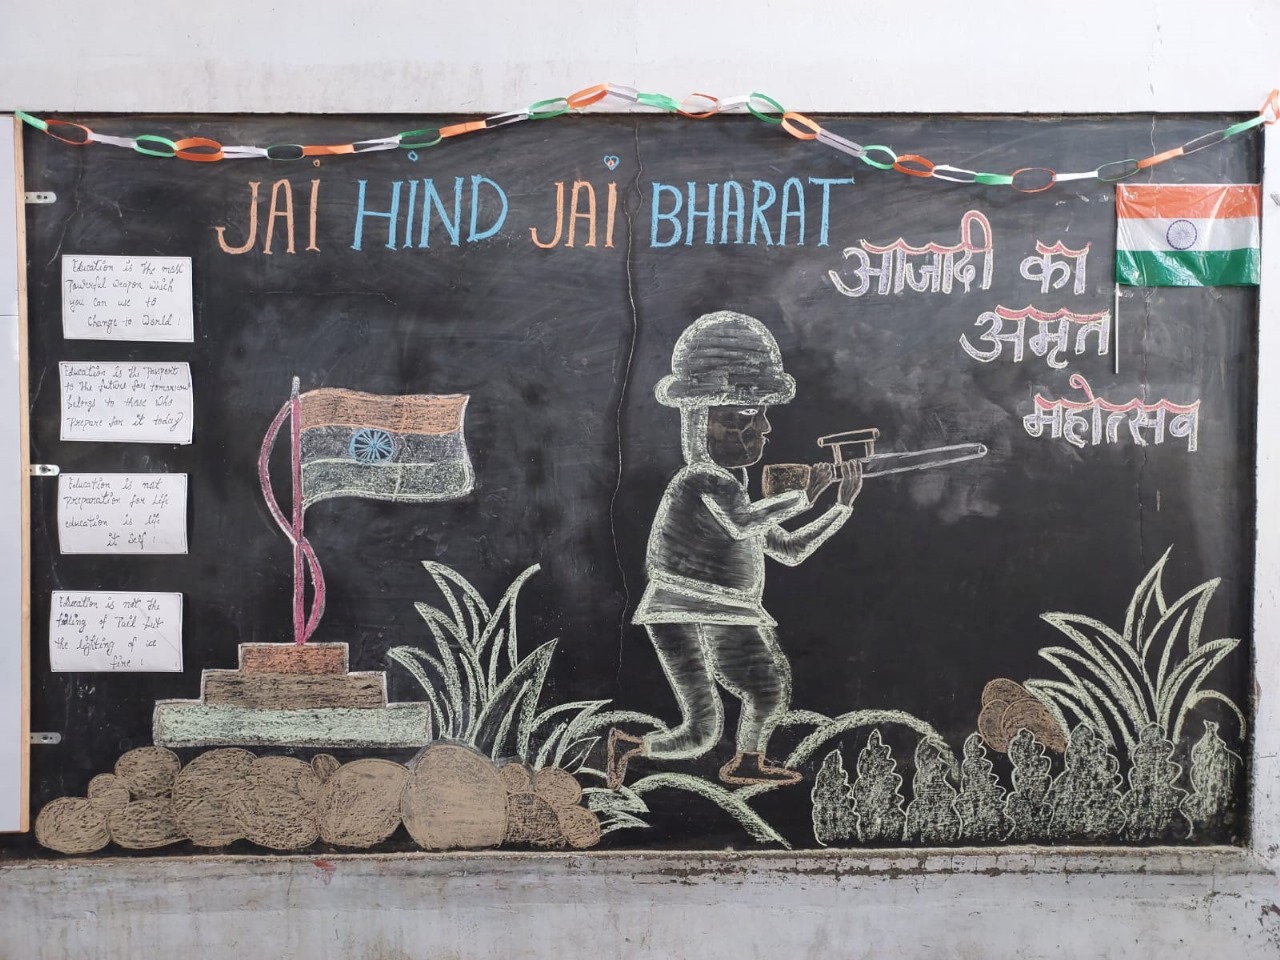 JAI HIND JAI BHARAT
आजादी का
अमृत
महोत्सव
Education is the most
Powerful weapon which
you can use to
Change to World !
Education is the Passport
to the future for tomorrow
belongs to those who
Prepare for it today
Education is not
Preparation for Life
education is life
it Self !
Education is not the
of Pail but
the lighting of
fire !